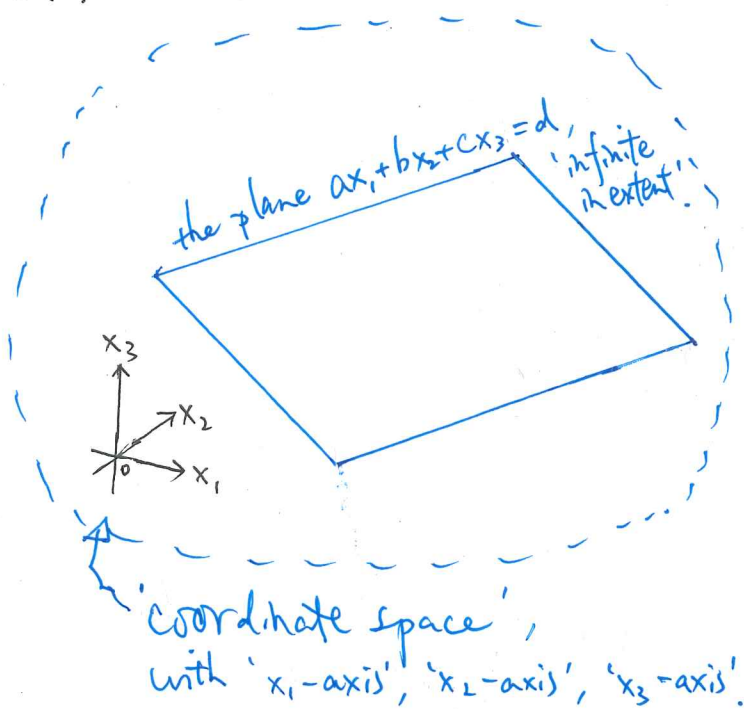 the plane ax₁+bx₂+cx₃=d,
'infinite
in extent'.
x₃
x₂
0
x₁
'coordinate space',
with 'x₁-axis', 'x₂-axis', 'x₃-axis'.